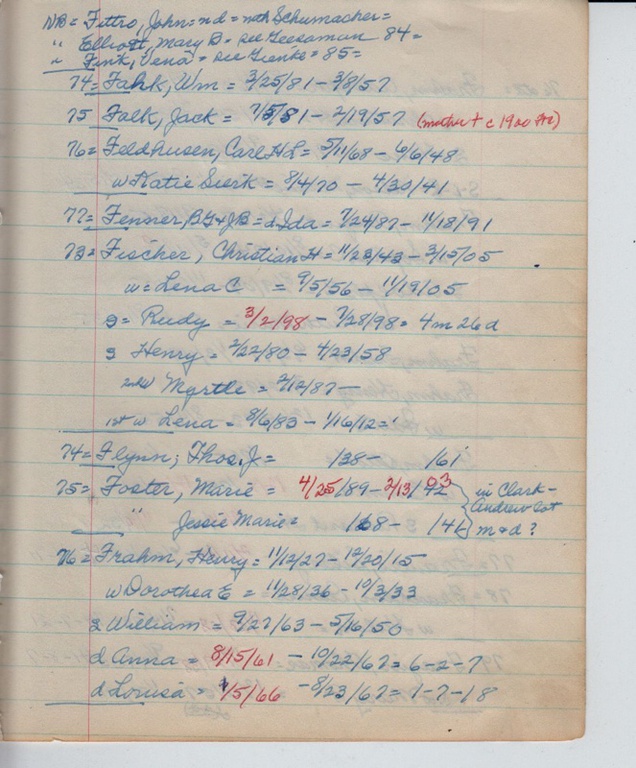 NB = Fettro, John = nd = mth Schumacher =
" Elliott, Mary B = see Geesaman 84 =
" Fink, Vena = see Gienke = 85 =
74 = Fahk, Wm = 3/25/81 - 3/8/57
75 Falk, Jack = 7/5/81 - 2/19/57 (mother + c 1900
76 = Feldhusen, Carl H L = 5/11/68 - 6/6/48
w Katie Sierk = 8/4/70 - 4/30/41
77 = Fenner, BG & JB = d Ida = 7/24/87 - 11/18/91
73 = Fischer, Christian H = 11/23/43 - 3/15/05
w = Lena C = 9/5/56 - 11/19/05
s = Rudy = 3/2/98 - 7/28/98 = 4m 26d
s Henry = 2/22/80 - 4/23/58
2nd w Myrtle = 2/12/87 -
1st w Lena = 8/6/83 - 1/16/12 =
74 = Flynn, Thos. J = /38 - /61
75 = Foster, Marie = 4/25/89 - 2/13/ 03 in Clark-
" Jessie Marie = 168 - /41 Andrew lot
m & d ?
76 = Frahm, Henry = 11/12/27 - 12/20/15
w Dorothea E = 11/28/36 - 10/3/33
s William = 9/27/63 - 5/16/50
d Anna = 8/15/61 - 10/22/67 = 6-2-7
d Louisa = /5/66 - 8/23/67 = 1-7-18